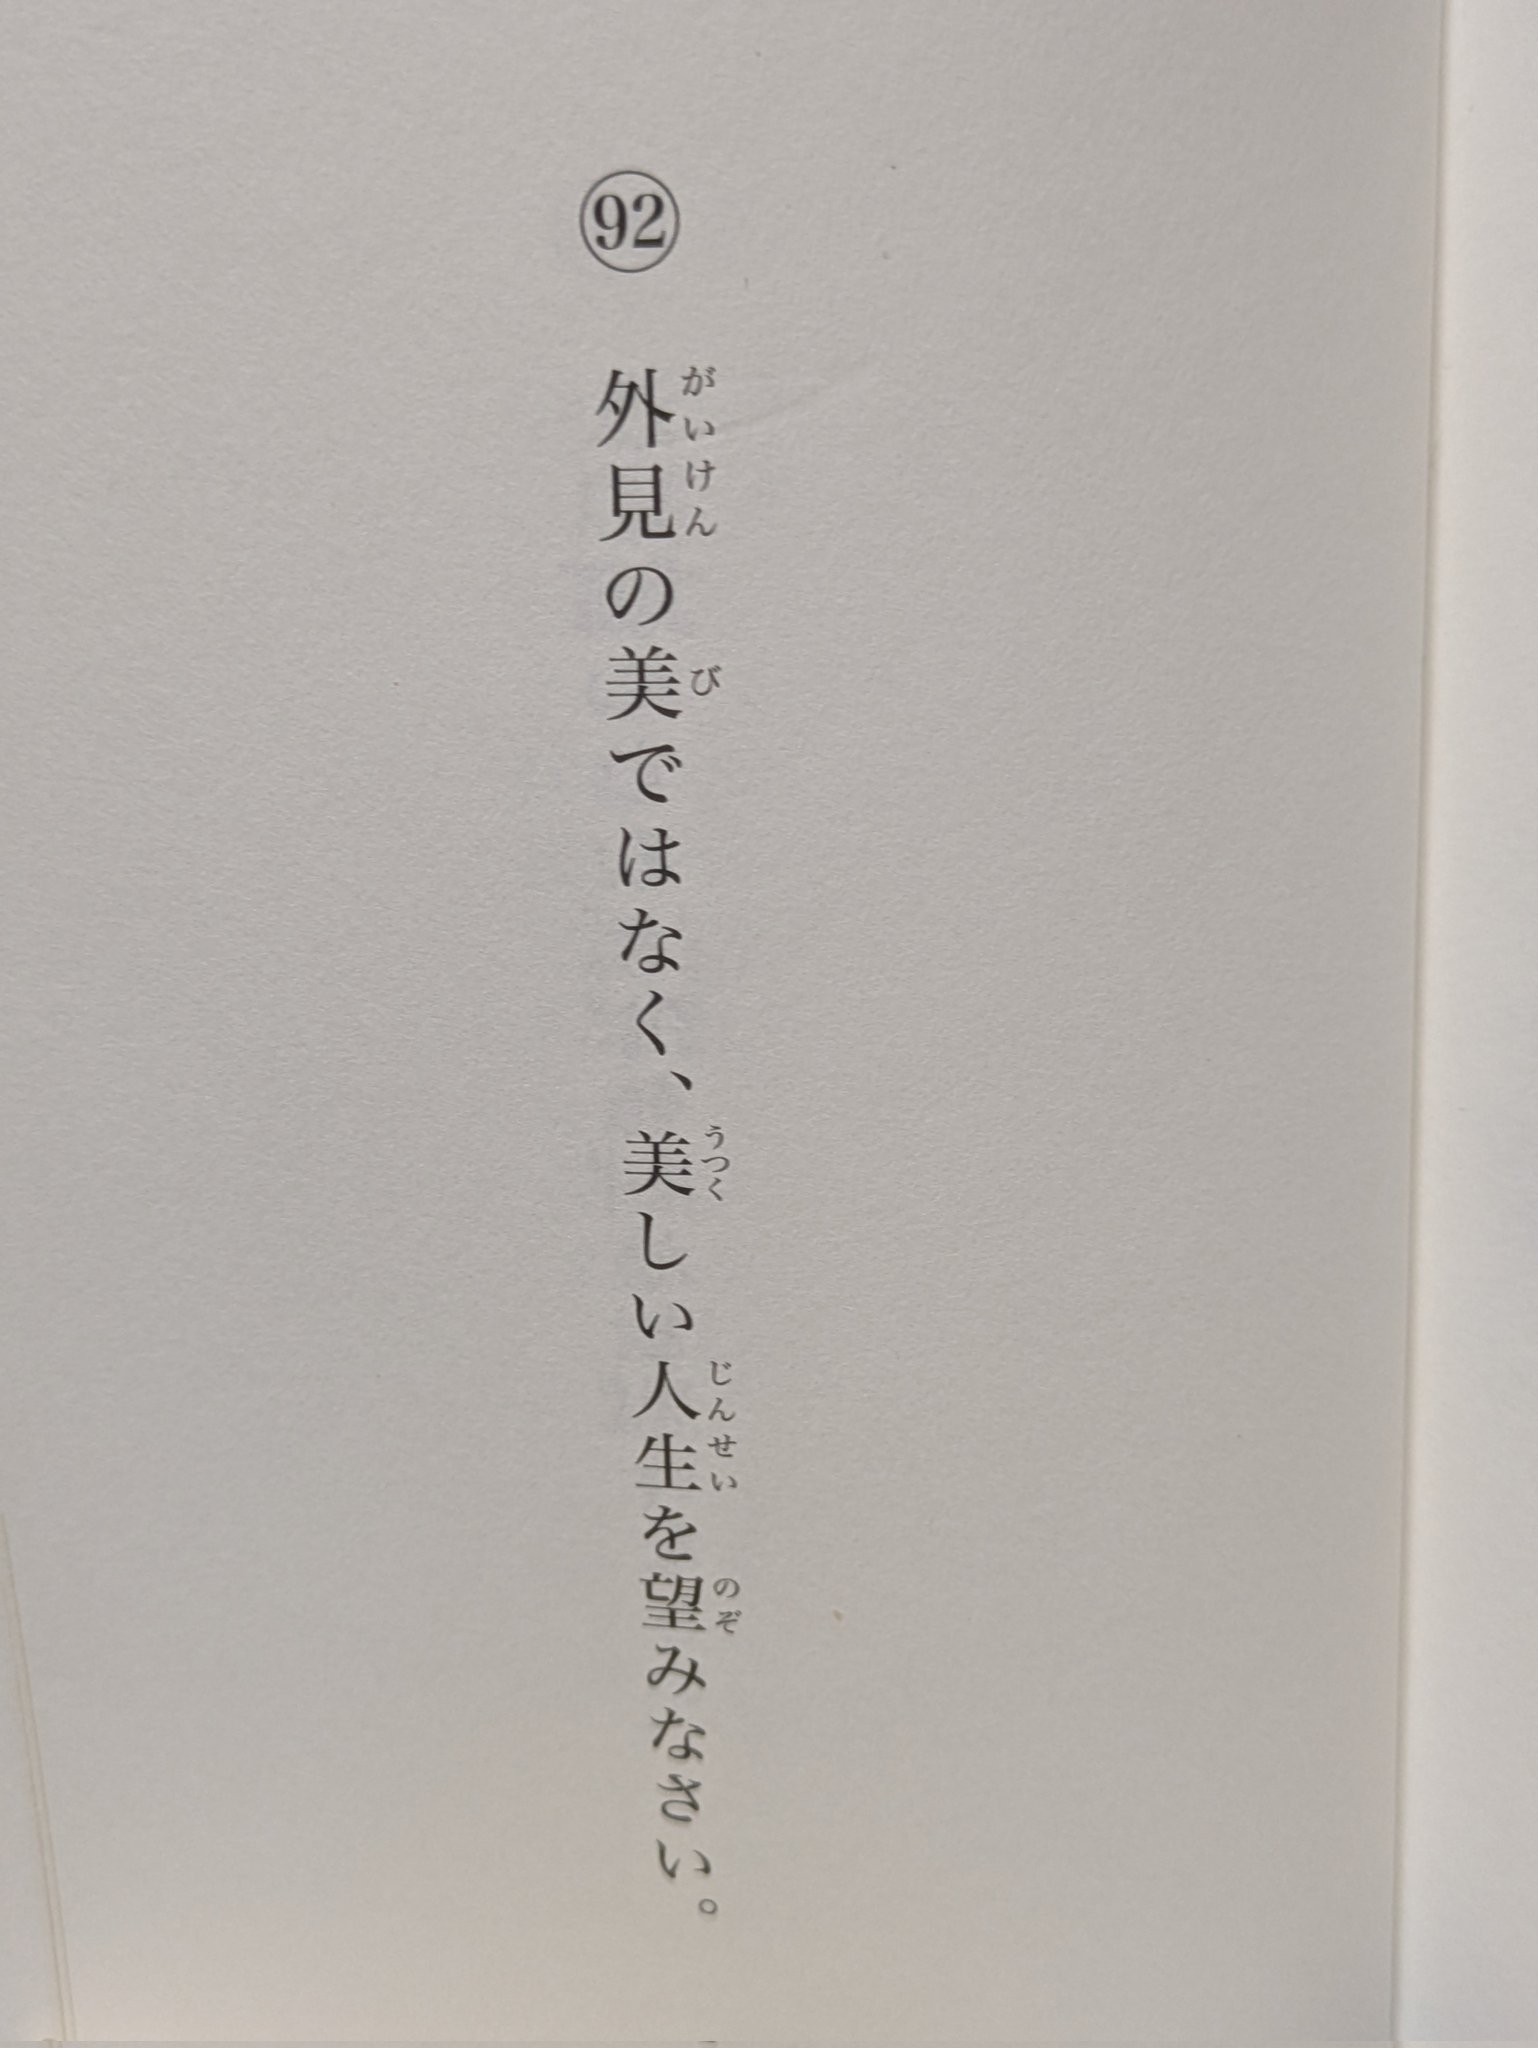 92
外見の美ではなく、美しい人生を望みなさい。
がいけん
び
うつく
じんせい
のぞ